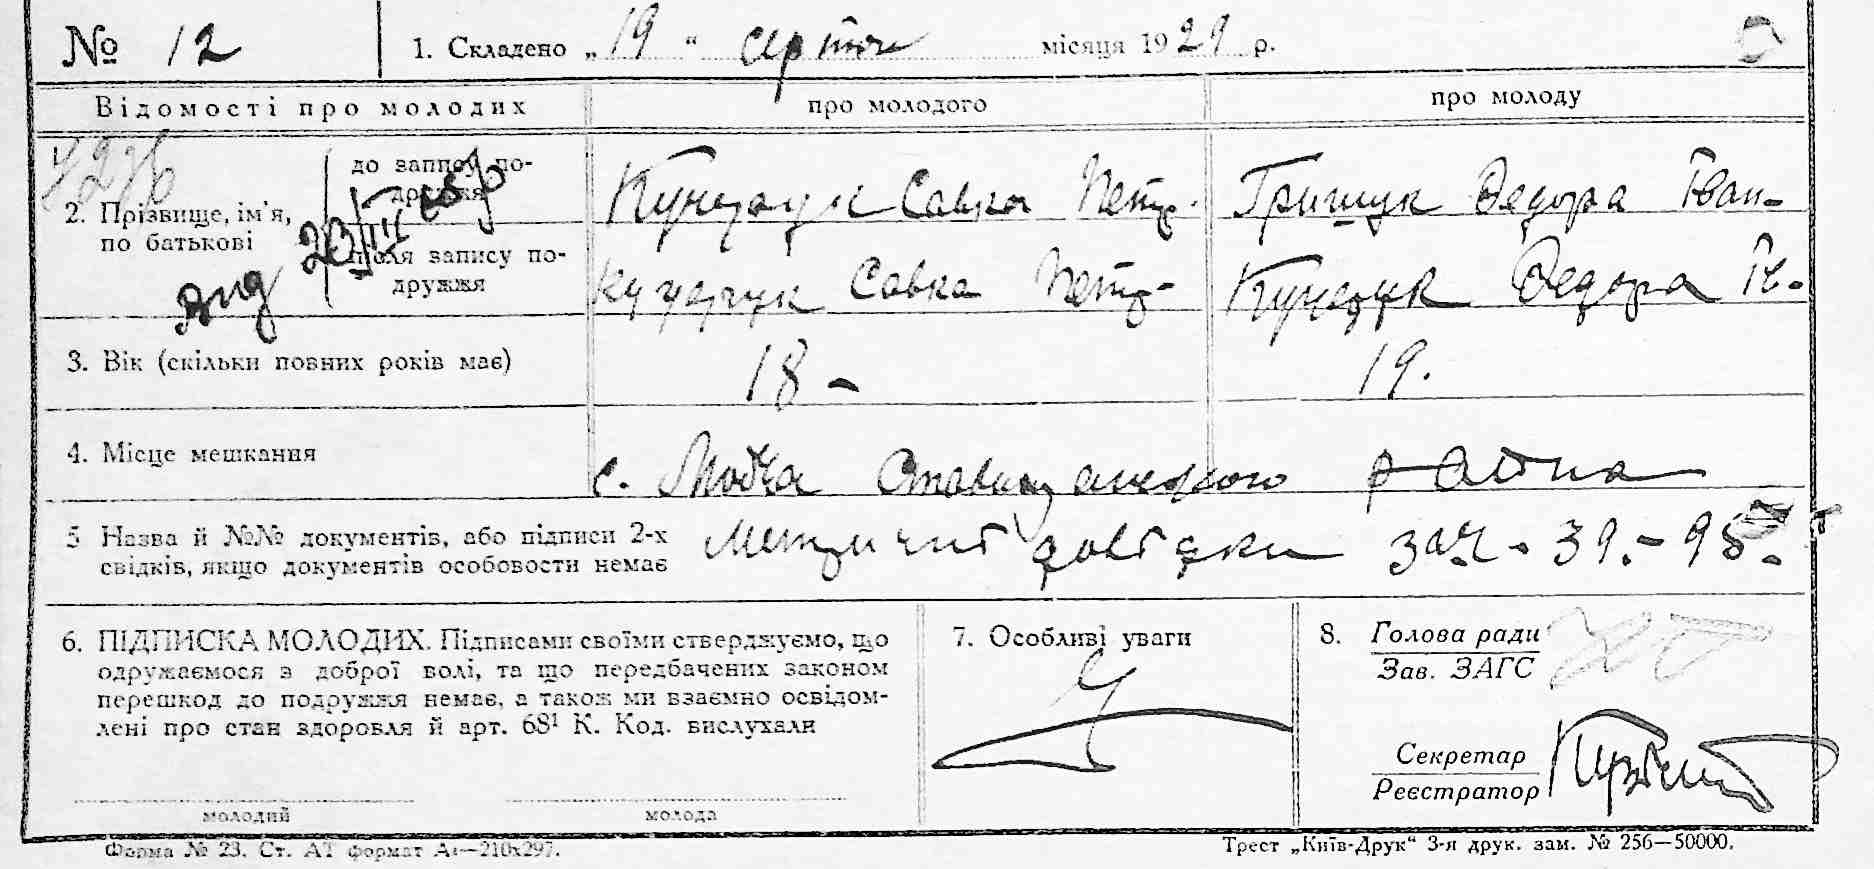 № 12
1. Складено „19“ серпня місяця 1929 р.
Відомості про молодих
про молодого
про молоду
2. Прізвище, ім'я, по батькові
до запису по-
дружжя
Савка Петр.
Грищук Федора Іван-
після запису по-
дружжя
Савка Петр-
Федора Ів.
3. Вік (скільки повних років має)
18 -
19.
4. Місце мешкання
с. Ставищанського району
5 Назва й №№ документів, або підписи 2-х
свідків, якщо документів особовости немає
39.-95
6. ПІДПИСКА МОЛОДИХ. Підписами своїми стверджуємо, що
одружаємося з доброї волі, та що передбачених законом
перешкод до подружжя немає, а також ми взаємно освідом-
лені про стан здоровля й арт. 68¹ К. Код. вислухали
молодий
молода
7. Особливі уваги
8. Голова ради
Зав. ЗАГС
Секретар
Реєстратор
Форма № 23. Ст. АТ формат А₄—210х297.
Трест „Київ-Друк“ 3-я друк. зам. № 256—50000.